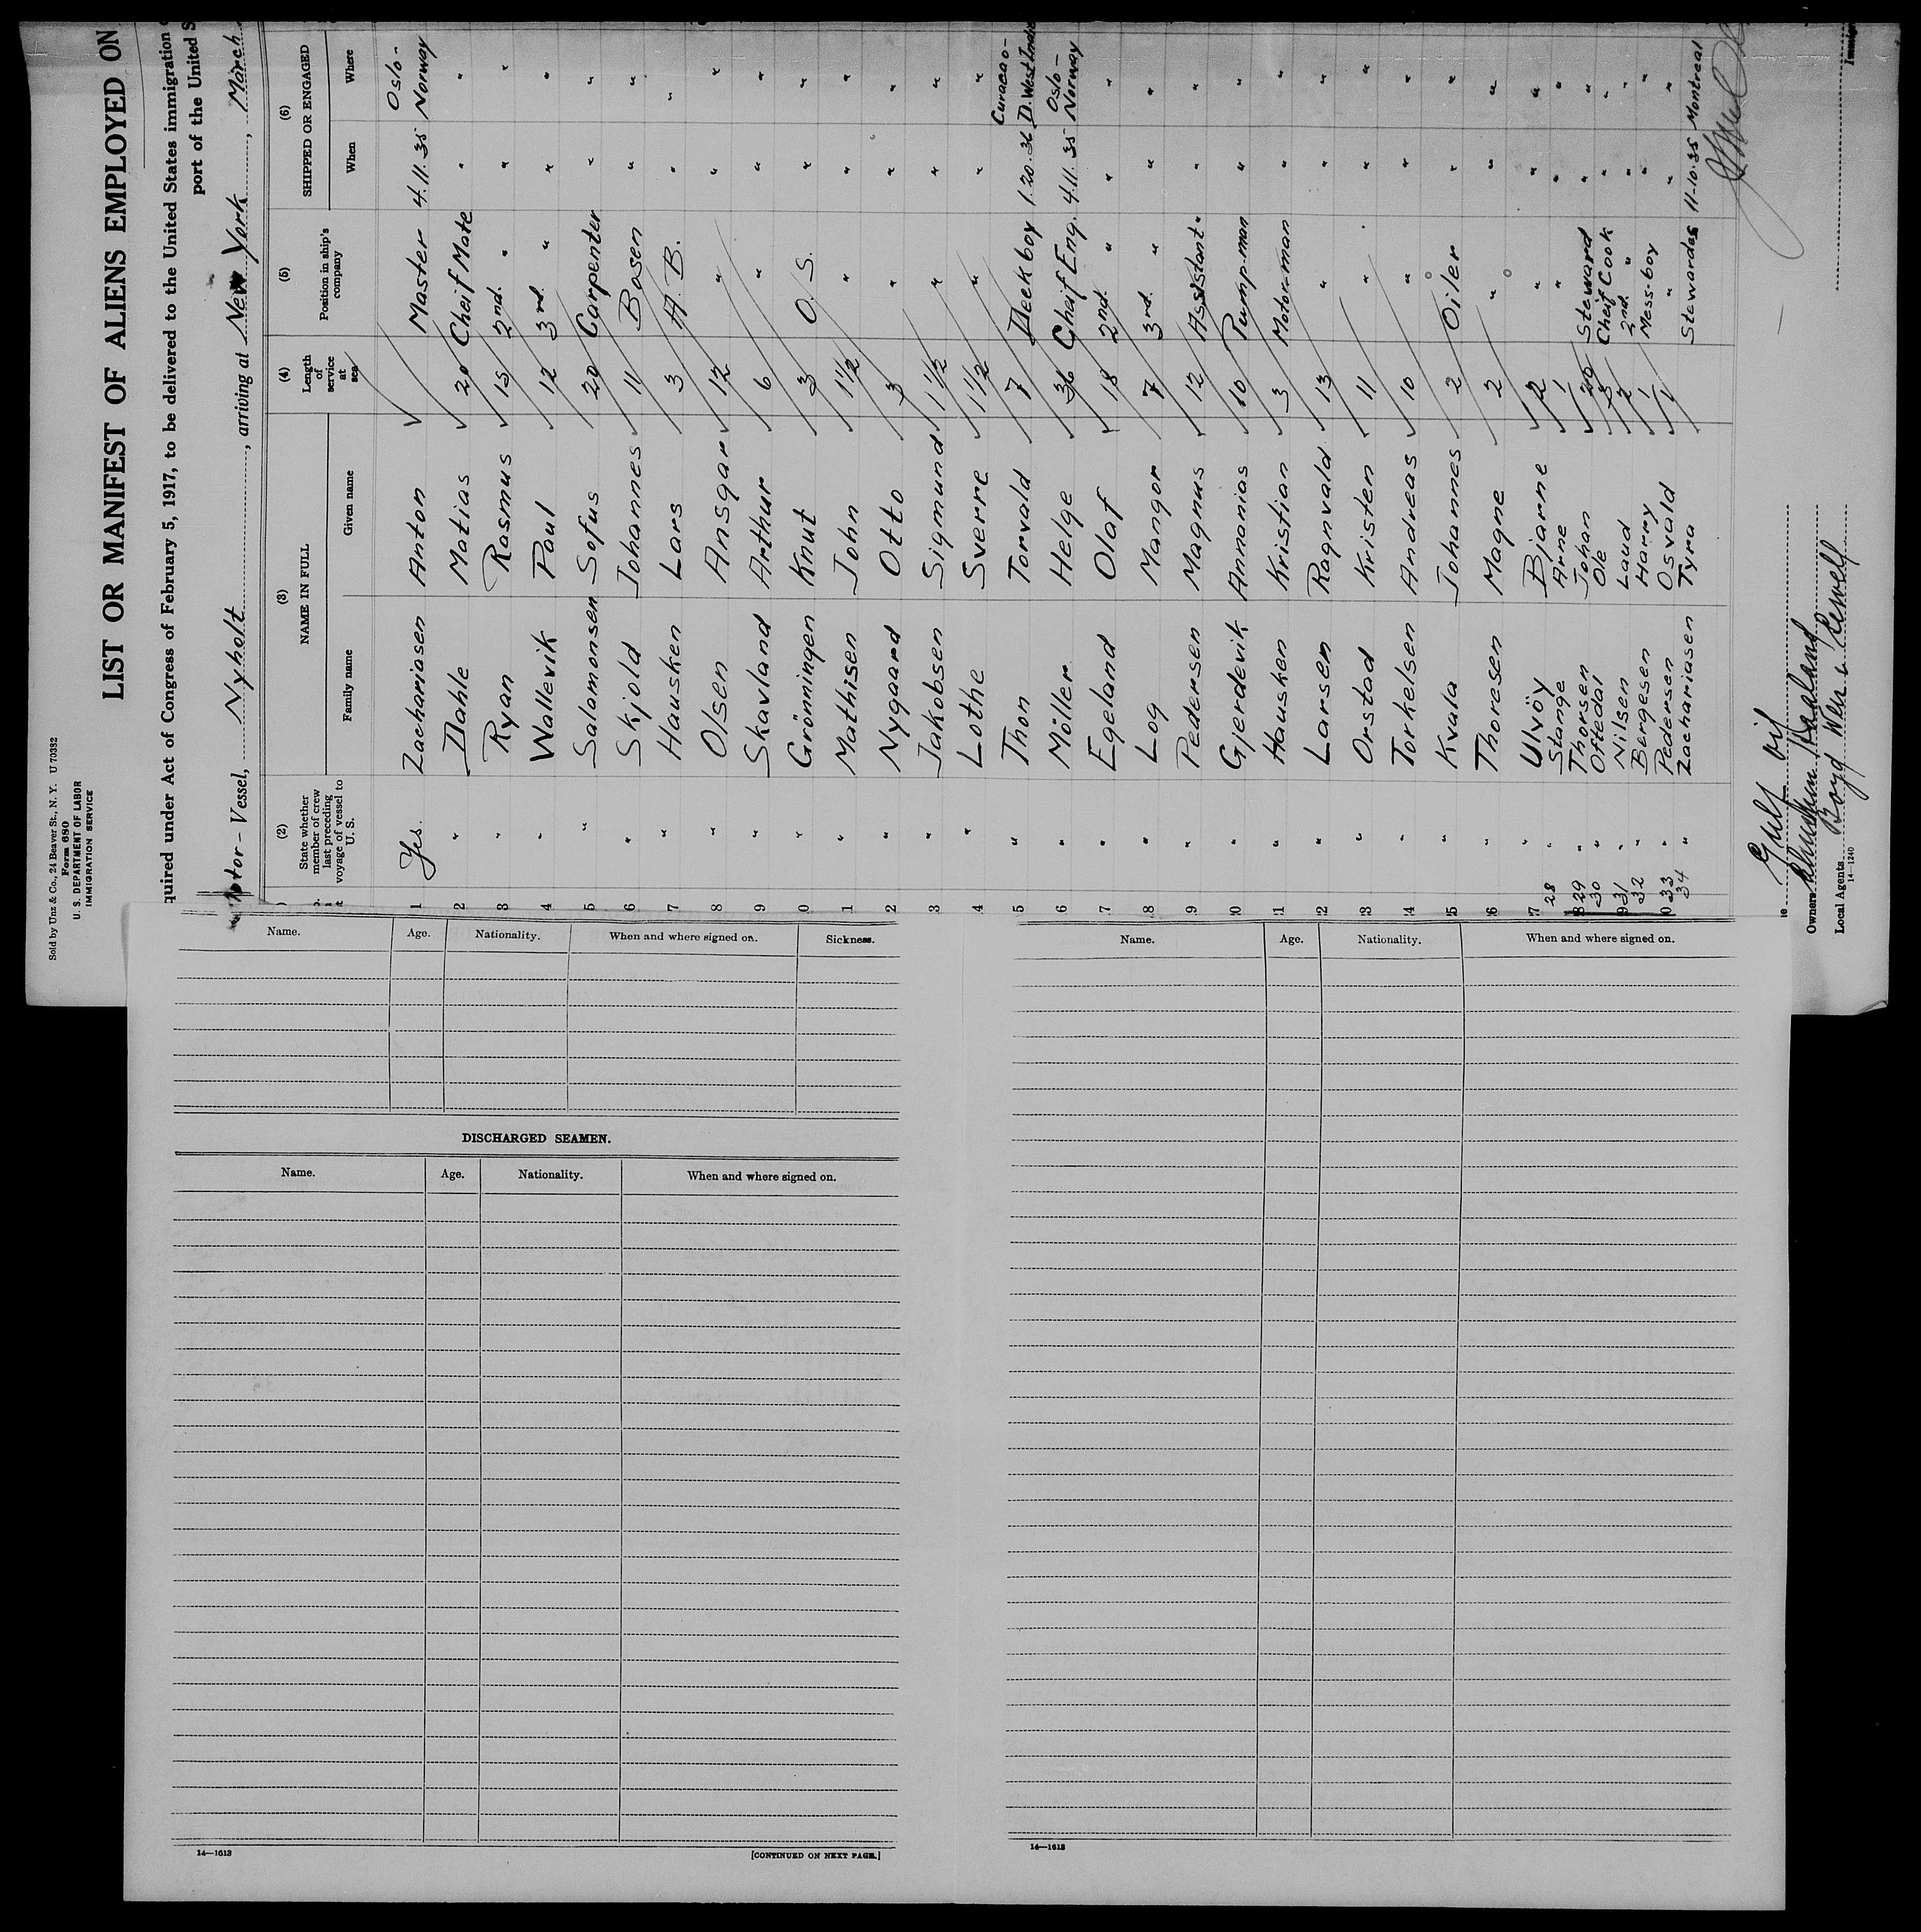 Sold by Unz & Co., 24 Beaver St., N. Y. U 70382
Form 680
U. S. DEPARTMENT OF LABOR
IMMIGRATION SERVICE
LIST OR MANIFEST OF ALIENS EMPLOYED ON
quired under Act of Congress of February 5, 1917, to be delivered to the United States immigration
port of the United S
Motor-Vessel, Nyholt, arriving at New York, March
(2) (3) (4) (5) (6)
State whether member of crew last preceding voyage of vessel to U. S. NAME IN FULL Length of service at sea Position in ship's company SHIPPED OR ENGAGED
Family name Given name When Where
1 Yes. Zachariasen Anton Master 4.11.35 Oslo- Norway
2 " Dahle Matias 20 Cheif Mate " "
3 " Ryan Rasmus 15 2nd. " " "
4 " Wallevik Paul 12 3rd. " " "
5 " Salamonsen Sofus 20 Carpenter " "
6 " Skjold Johannes 11 Bosen " "
7 " Hausken Lars 3 A. B. " "
8 " Olsen Ansgar 12 " " "
9 " Skavland Arthur 6 " " "
0 " Grönningen Knut 3 O. S. " "
1 " Mathisen John 1 1/2 " " "
2 " Nygaard Otto 3 " " "
3 " Jakobsen Sigmund 1 1/2 " " "
4 " Lothe Sverre 1 1/2 " " "
5 " Thon Torvald 7 Deck boy 1.20.36 Curacao- D. West Indie
6 " Möller Helge 36 Cheif Eng. 4.11.35 Oslo- Norway
7 " Egeland Olaf 18 2nd. " " "
8 " Log Mangor 7 3rd. " " "
9 " Pedersen Magnus 12 Assistant " " "
0 " Gjerdevik Annanias 10 Pump-man " "
1 " Hausken Kristian 3 Motor-man " "
2 " Larsen Ragnvald 13 " " "
3 " Orstad Kristen 11 " " "
4 " Torkelsen Andreas 10 " " "
5 " Kvala Johannes 2 Oiler " "
6 " Thoresen Magne 2 " " "
7 " Ulvöy Bjarne 2 " " "
28 " Stange Arne 1 " " "
29 " Thorsen Johan 20 Steward " "
30 " Oftedal Ole 3 Cheif Cook " "
31 " Nilsen Laud 2 2nd. " " "
32 " Bergesen Harry 1 Mess-boy " "
33 " Pedersen Osvald 1 " " "
34 " Zachariasen Tyra Stewardes 11-10-35 Montreal
Gulf oil
Owners
Local Agents Boyd
14—1240
Name. Age. Nationality. When and where signed on. Sickness.
DISCHARGED SEAMEN.
Name. Age. Nationality. When and where signed on.
14—1613 [CONTINUED ON NEXT PAGE.]
Name. Age. Nationality. When and where signed on.
14—1613